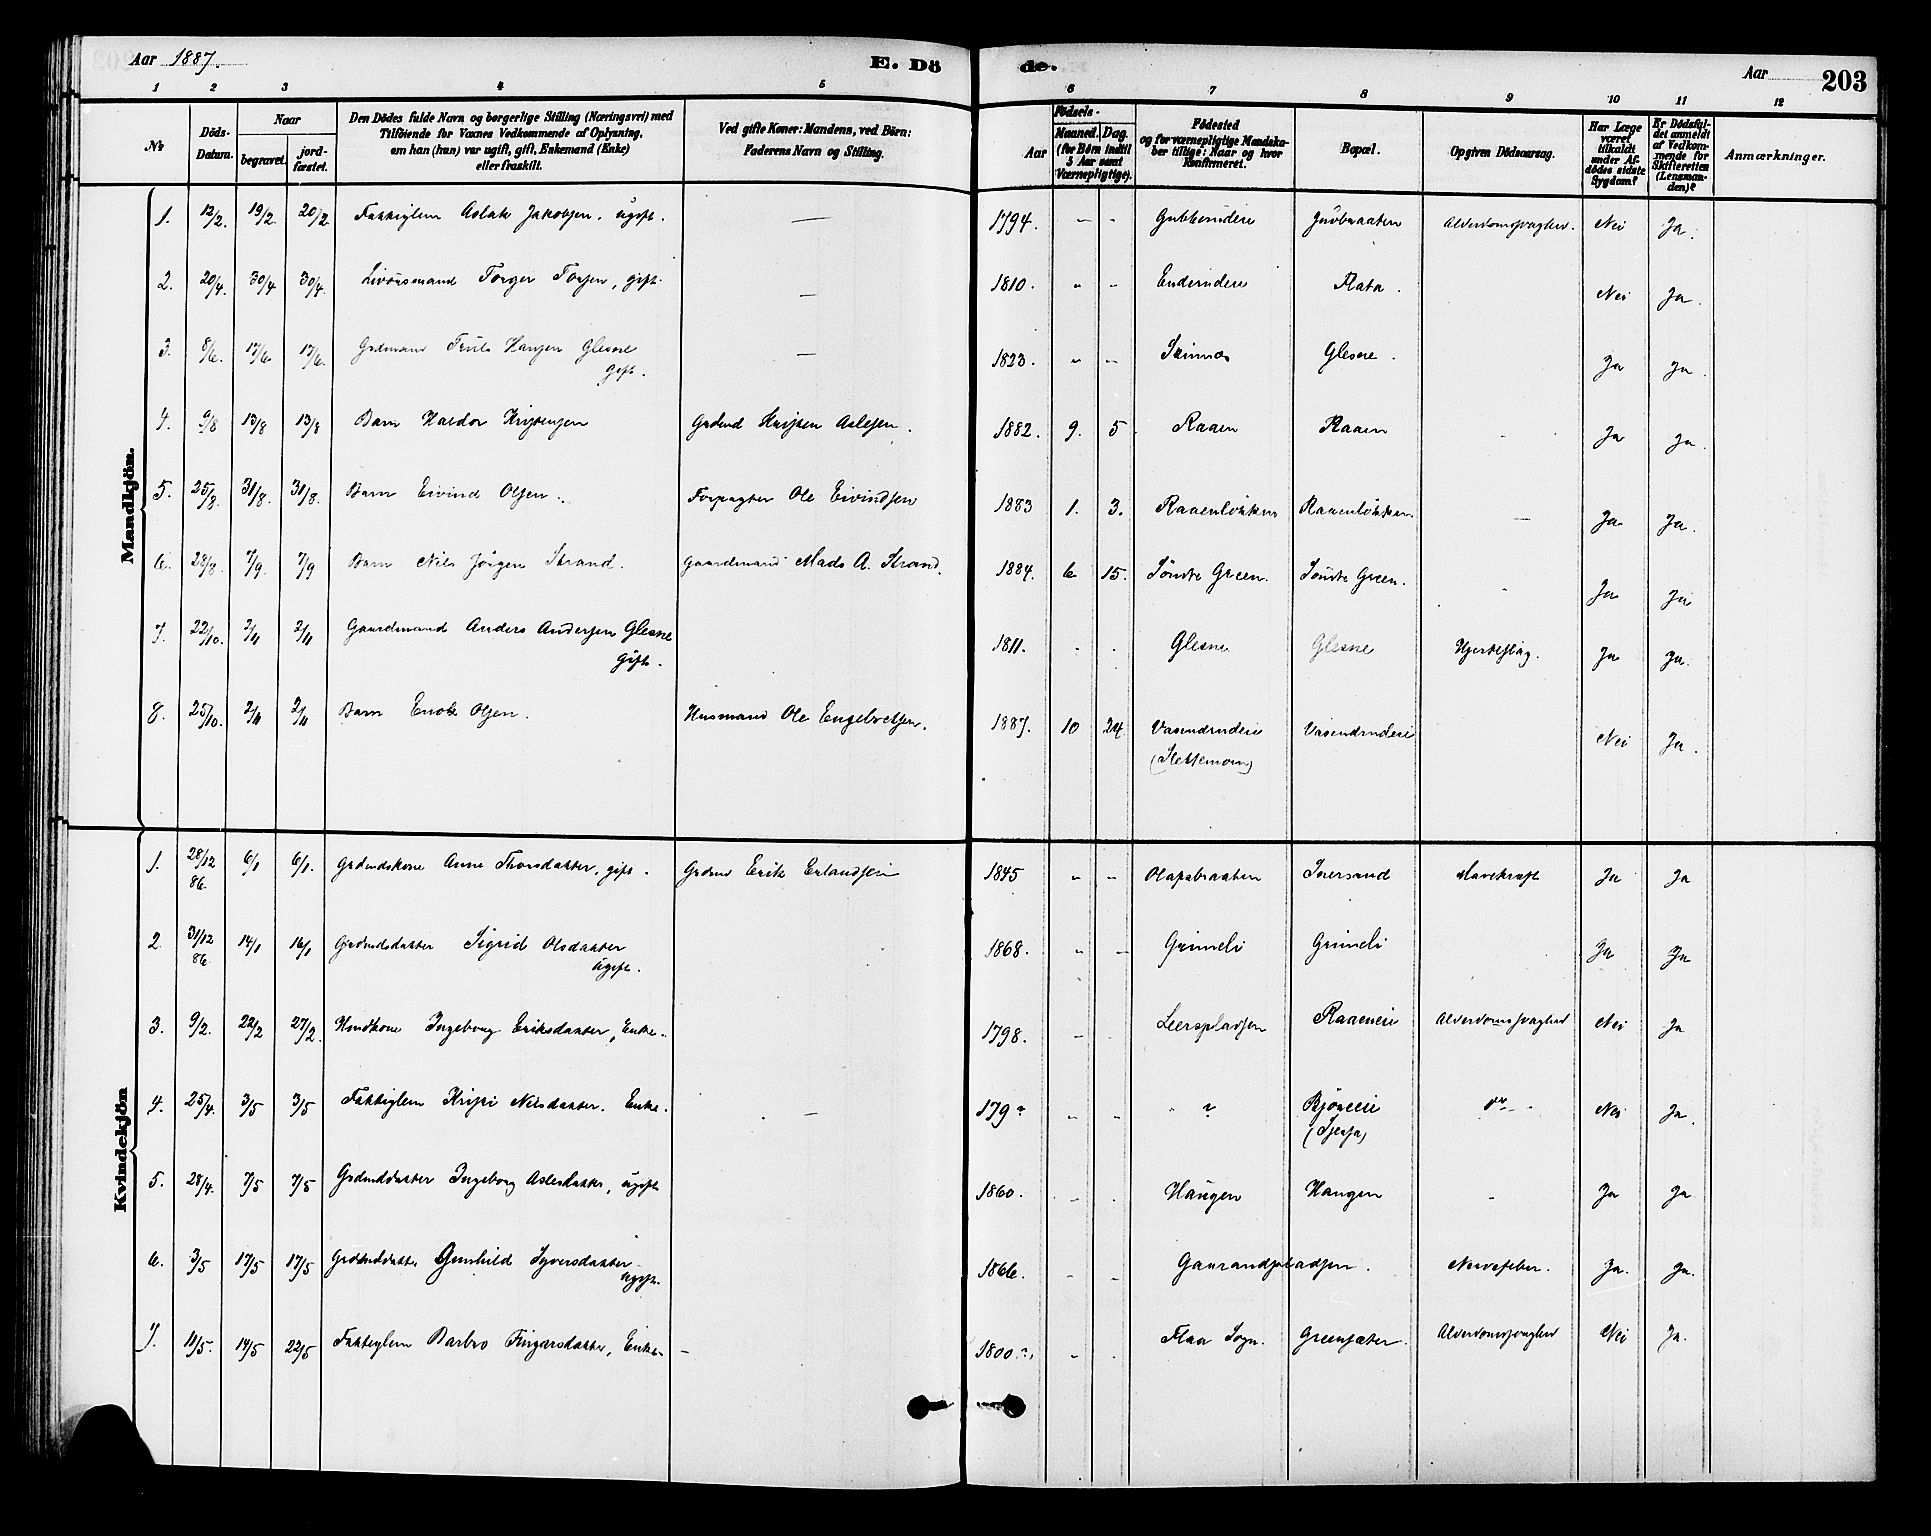 Aar 1887. E. Dö de. Aar 203
1 2 3 4 5 6 7 8 9 10 11 12
No
Döds-Datum.
Naar
begravet. jordfæstet.
Den Dödes fulde Navn og borgerlige Stilling (Næringsvei) med
Tilföiende for Voxnes Vedkommende af Oplysning,
om han (hun) var ugift, gift, Enkemand (Enke)
eller fraskilt.
Ved gifte Koner: Mandens, ved Börn:
Faderens Navn og Stilling.
Födsels-
Aar Maaned. Dag.
(for Börn indtil
5 Aar samt
Værnepligtige).
Födested
og for værnepligtige Mandska-
ber tillige: Naar og hvor
Konfirmeret.
Bopæl.
Opgiven Dödsaarsag.
Har Læge
været
tilkaldt
under Af-
dödes sidste
Sygdom?
Er Dödsfal-
det anmeldt
af Vedkom-
mende for
Skifteretten
(Lensman-
den)?
Anmærkninger.
Mandkjön.
1. 12/2. 19/2. 20/2 Fattiglem Aslak Jakobsen, ugift. — 1794. " " Gubberudeie Alderdomssvaghed. Nei Ja.
2. 20/4. 30/4 30/4. Torger — 1810. " " Enderudeie Flata. Nei Ja.
3. 8/6. 17/6 17/6. Grdmand Truls Hansen Glesne
Gift. — 1823. " " Skinnes Glesne. Ja Ja.
4. 9/8 13/8 13/8 Barn Haldor Kristensen Grdmd Kristen Aslesen. 1882. 9. 5 Raaen Raaen - Ja Ja.
5. 25/8. 31/8. 31/8. Barn Eivind Olsen. Forpagter Ole Eivindsen 1883 1. 3. Raaenløkken Raaenløkken. — Ja Ja.
6. 28/8. 7/9. 7/9 Barn Nils Jörgen Strand. Gaardmand Mads A. Strand. 1884. 6 15. Söndre Green. Söndre Green. - Ja Ja
7. 22/10. 2/11 2/11 Gaardmand Anders Andersen Glesne
Gift. 1811. " " Glesne Glesne Hjerteslag. Ja Ja.
8. 25/10. 2/11 2/11 Barn Enok Olsen. Husmand Ole Engebretsen. 1887. 10 24 Vasendrudeie Vasendrudeie Nei Ja.
(Slettemoen)
Kvindekjön
1. 28/12
86. 6/1 6/1. Grdmdskone Anne Thorsdatter, gift. Grdmd Erik Erlandsen 1845 " " Olapabraaten Snersrud Mavekræft Ja Ja
2. 31/12
86. 14/1 16/1 Grdmdsdatter Sigrid Olsdatter
ugift. 1868. " — Grimeli Grimeli Ja Ja
3. 9/2. 22/2 27/2. Hmdkone Ingeborg Eriksdatter, Enke. 1798. - . Leerspladsen Raaeneie Alderdomssvaghed Nei Ja
4. 25/4. 3/5 3/5 Fattiglem Kristi Nilsdatter. Enke. — 179? " " " ? Nei Ja.
5. 28/4. 7/5 7/5 Grdmddatter Ingeborg Aslesdatter, ugift 1860. " " Haugen Haugen - Ja Ja
6. 3/5 17/5 17/5 Grdmddatter Gunhild Syversdatter
ugift. 1866. " " Gaarandpladsen. Nervefeber. Ja. Ja.
7. 11/5. 14/5 22/5 Fattiglem Barbro Fingarsdatter, Enke. — 1800?, " . Flaa Sogn. Greensæter. Alderdomssvaghed Nei Ja.